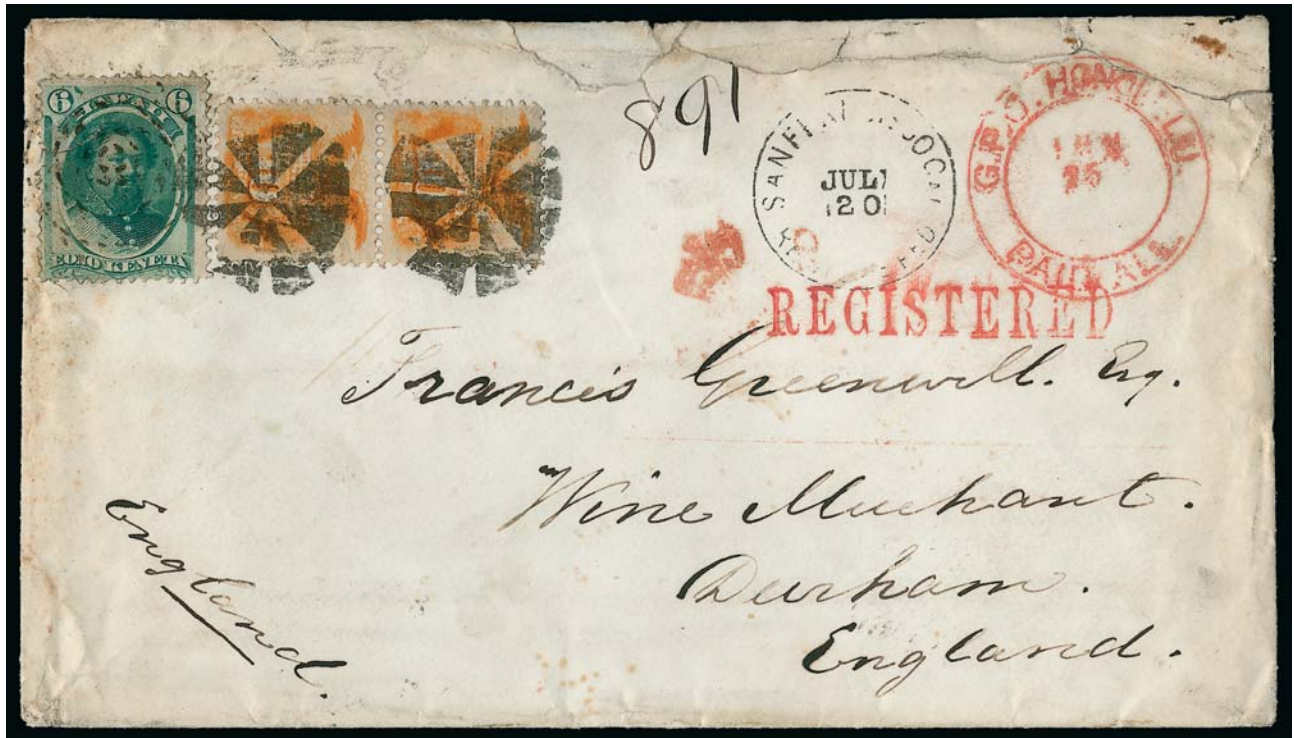 6 6
EONO KENETA
891
SAN FRANCISCO CAL
JUL
20
G.P.O. HONOLULU
25
PAID ALL
REGISTERED
Francis Greenwell. Esq.
Wine Merchant.
Durham.
England.
England.